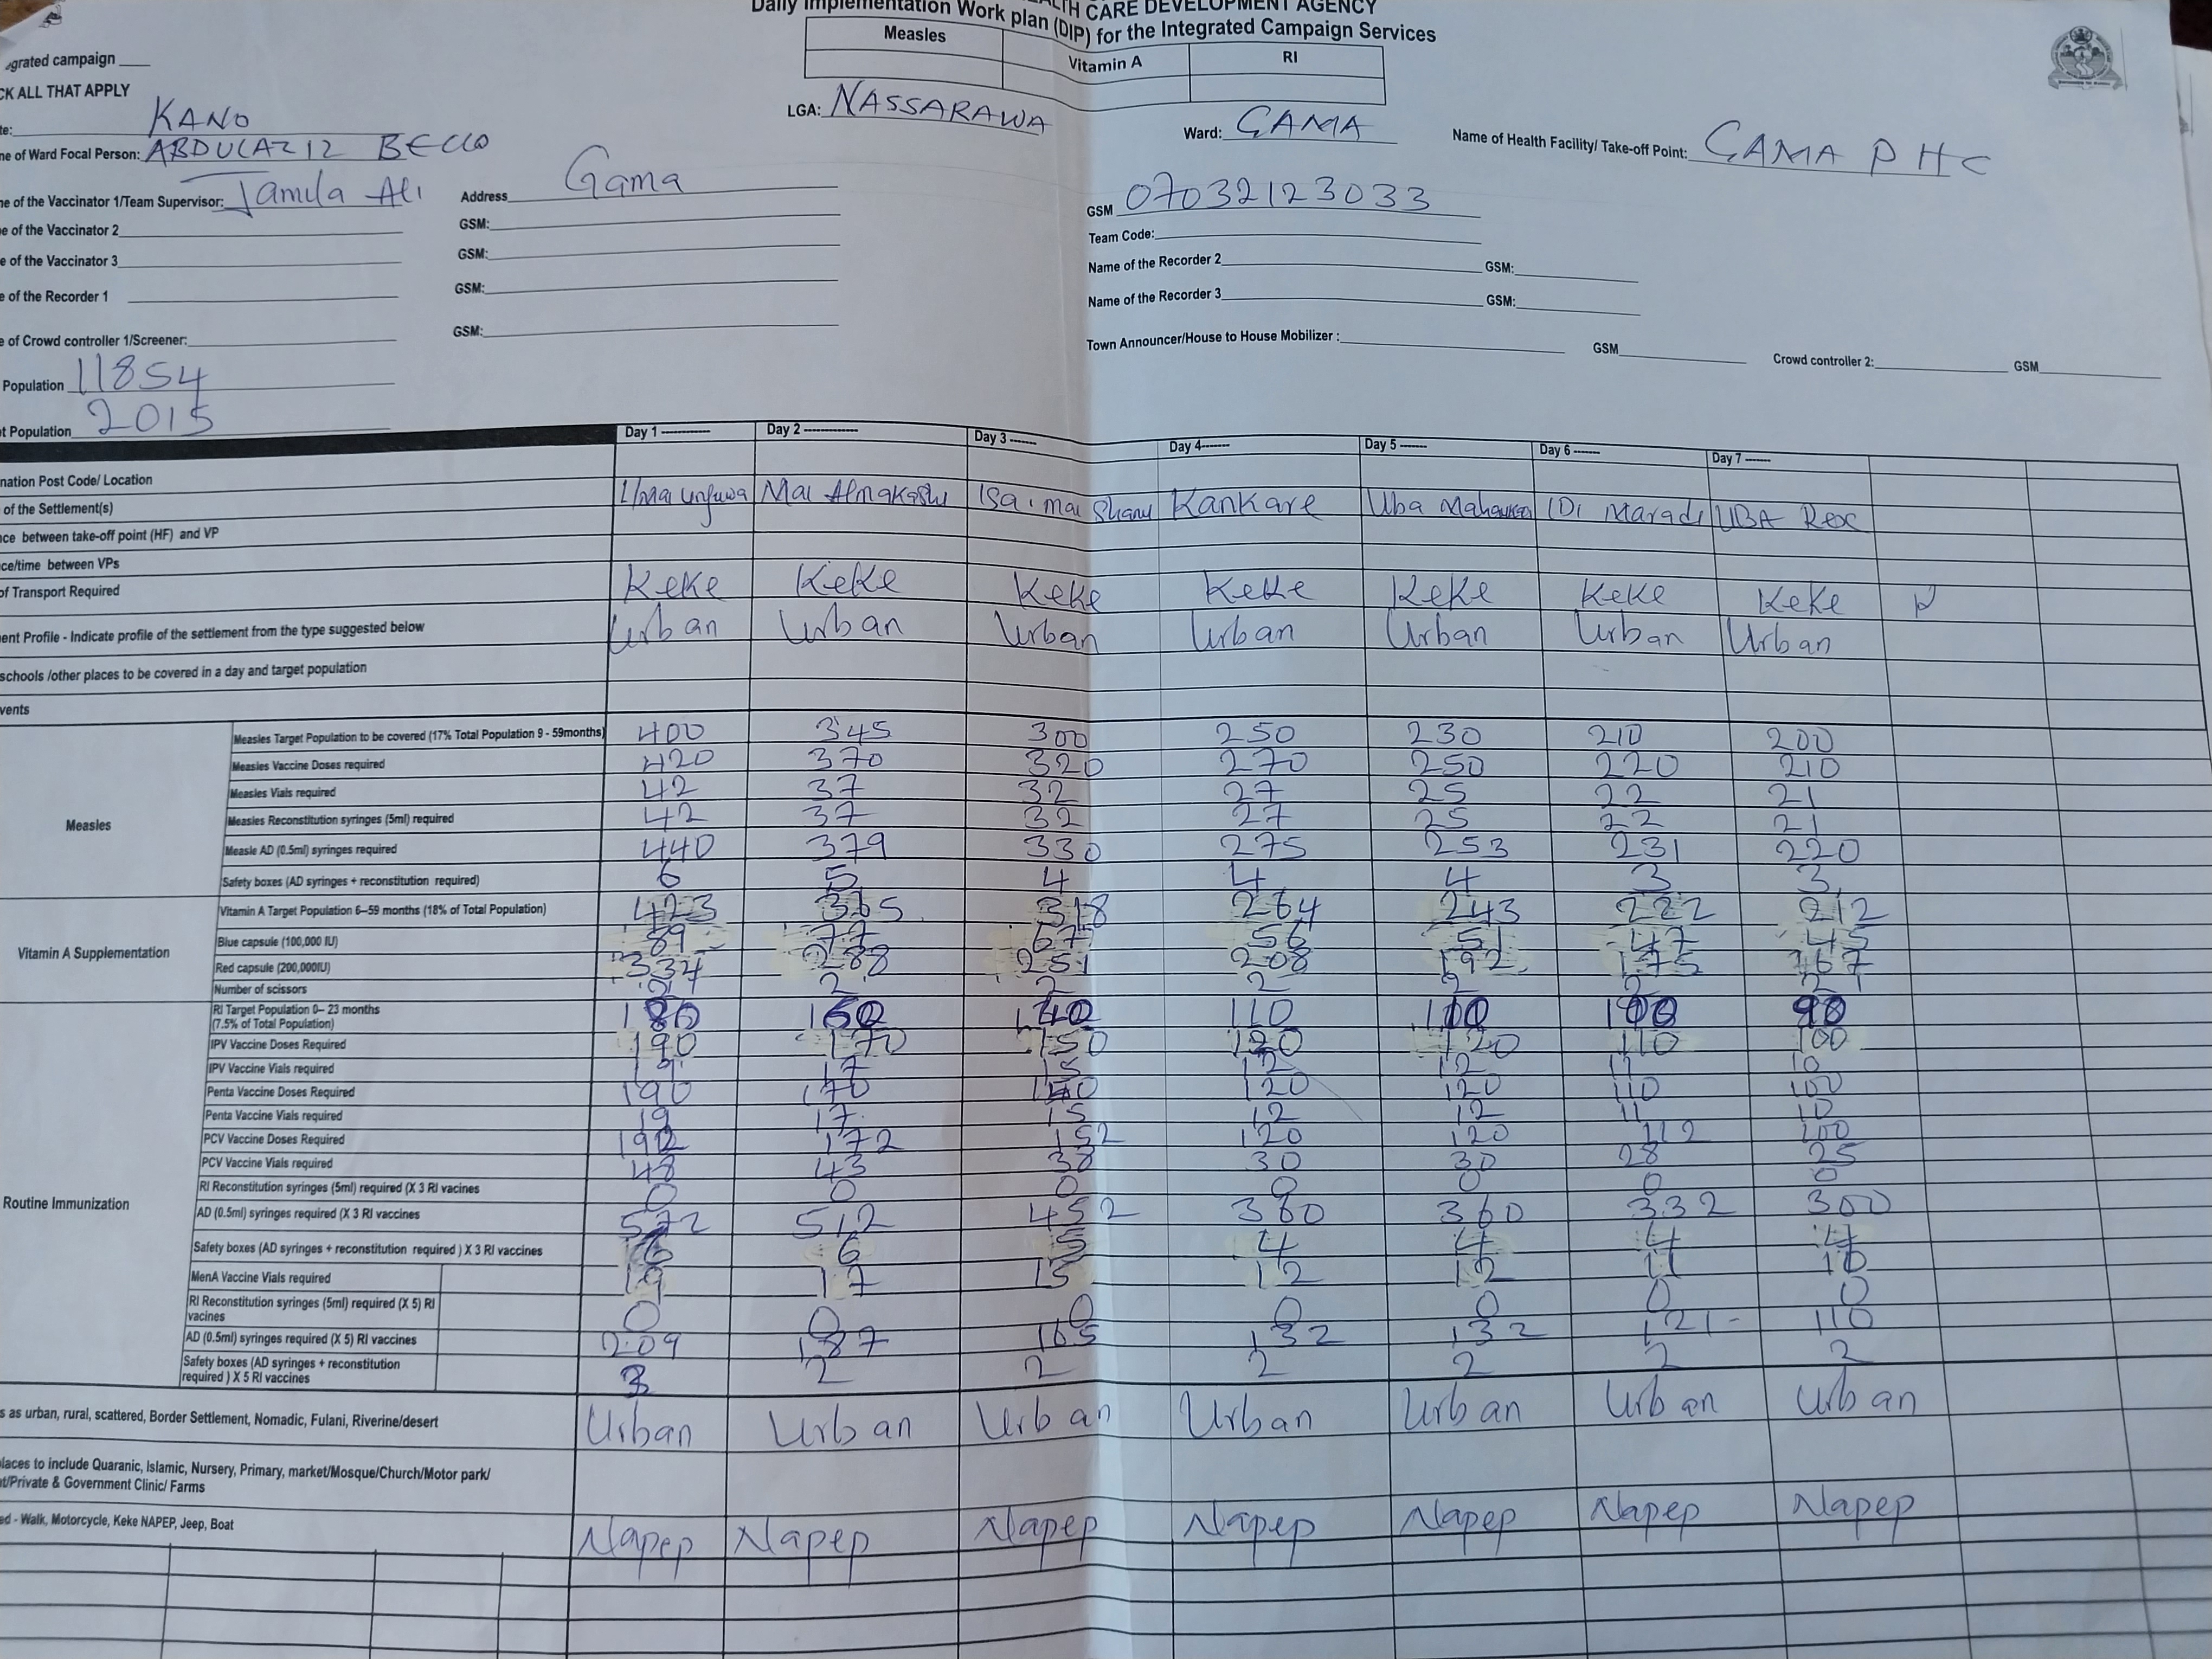 ALTH CARE DEVELOPMENT AGENCY
Daily Implementation Work plan (DIP) for the Integrated Campaign Services
Measles
Vitamin A
RI
grated campaign
CK ALL THAT APPLY
te: KANO LGA: NASSARAWA Ward: GAMA Name of Health Facility/ Take-off Point: GAMA PHC
ne of Ward Focal Person: ABDULAZIZ BELLO
ne of the Vaccinator 1/Team Supervisor: Jamila Ali Address Gama GSM 07032123033
e of the Vaccinator 2 GSM: Team Code:
e of the Vaccinator 3 GSM: Name of the Recorder 2 GSM:
e of the Recorder 1 GSM: Name of the Recorder 3 GSM:
e of Crowd controller 1/Screener: GSM: Town Announcer/House to House Mobilizer : GSM Crowd controller 2: GSM
Population 11854
t Population 2015
Day 1 Day 2 Day 3 Day 4 Day 5 Day 6 Day 7
nation Post Code/ Location
of the Settlement(s) Mai Almakashi Isa mai Kankare Uba UBA Rex
ce between take-off point (HF) and VP
ce/time between VPs
of Transport Required Keke Keke Keke Keke Keke Keke Keke
ent Profile - Indicate profile of the settlement from the type suggested below Urban Urban Urban Urban Urban Urban Urban
schools /other places to be covered in a day and target population
vents
Measles
Measles Target Population to be covered (17% Total Population 9 - 59months) 400 345 300 250 230 210 200
Measles Vaccine Doses required 420 370 320 270 250 220 210
Measles Vials required 42 37 32 27 25 22 21
Measles Reconstitution syringes (5ml) required 42 37 32 27 25 22 21
Measle AD (0.5ml) syringes required 440 379 330 275 253 231 220
Safety boxes (AD syringes + reconstitution required) 6 5 4 4 4 3 3
Vitamin A Supplementation
Vitamin A Target Population 6–59 months (18% of Total Population) 423 365 318 264 243 222 212
Blue capsule (100,000 IU) 89 77 67 56 51 47 45
Red capsule (200,000IU) 334 288 251 208 192 175 167
Number of scissors 2 2 2
Routine Immunization
RI Target Population 0– 23 months (7.5% of Total Population) 180 160 140 110 100 100 90
IPV Vaccine Doses Required 190 170 150 120 120 110 100
IPV Vaccine Vials required 19 17 15 12 12 11 10
Penta Vaccine Doses Required 190 170 120 120 110 100
Penta Vaccine Vials required 19 17 15 12 12 11 10
PCV Vaccine Doses Required 192 172 152 120 120 112 100
PCV Vaccine Vials required 48 43 38 30 30 28 25
RI Reconstitution syringes (5ml) required (X 3 RI vacines 0 0 0 0 0 0 0
AD (0.5ml) syringes required (X 3 RI vaccines 572 512 452 360 360 332 300
Safety boxes (AD syringes + reconstitution required ) X 3 RI vaccines 6 5 4 4 4 4
MenA Vaccine Vials required 19 17 15 12 12 11 10
RI Reconstitution syringes (5ml) required (X 5) RI vaccines 0 0 0 0 0 0 0
AD (0.5ml) syringes required (X 5) RI vaccines 209 187 165 132 132 121 110
Safety boxes (AD syringes + reconstitution required ) X 5 RI vaccines 3 2 2 2 2 2 2
s as urban, rural, scattered, Border Settlement, Nomadic, Fulani, Riverine/desert Urban Urban Urban Urban Urban Urban Urban
laces to include Quaranic, Islamic, Nursery, Primary, market/Mosque/Church/Motor park/
t/Private & Government Clinic/ Farms
ed - Walk, Motorcycle, Keke NAPEP, Jeep, Boat Napep Napep Napep Napep Napep Napep Napep